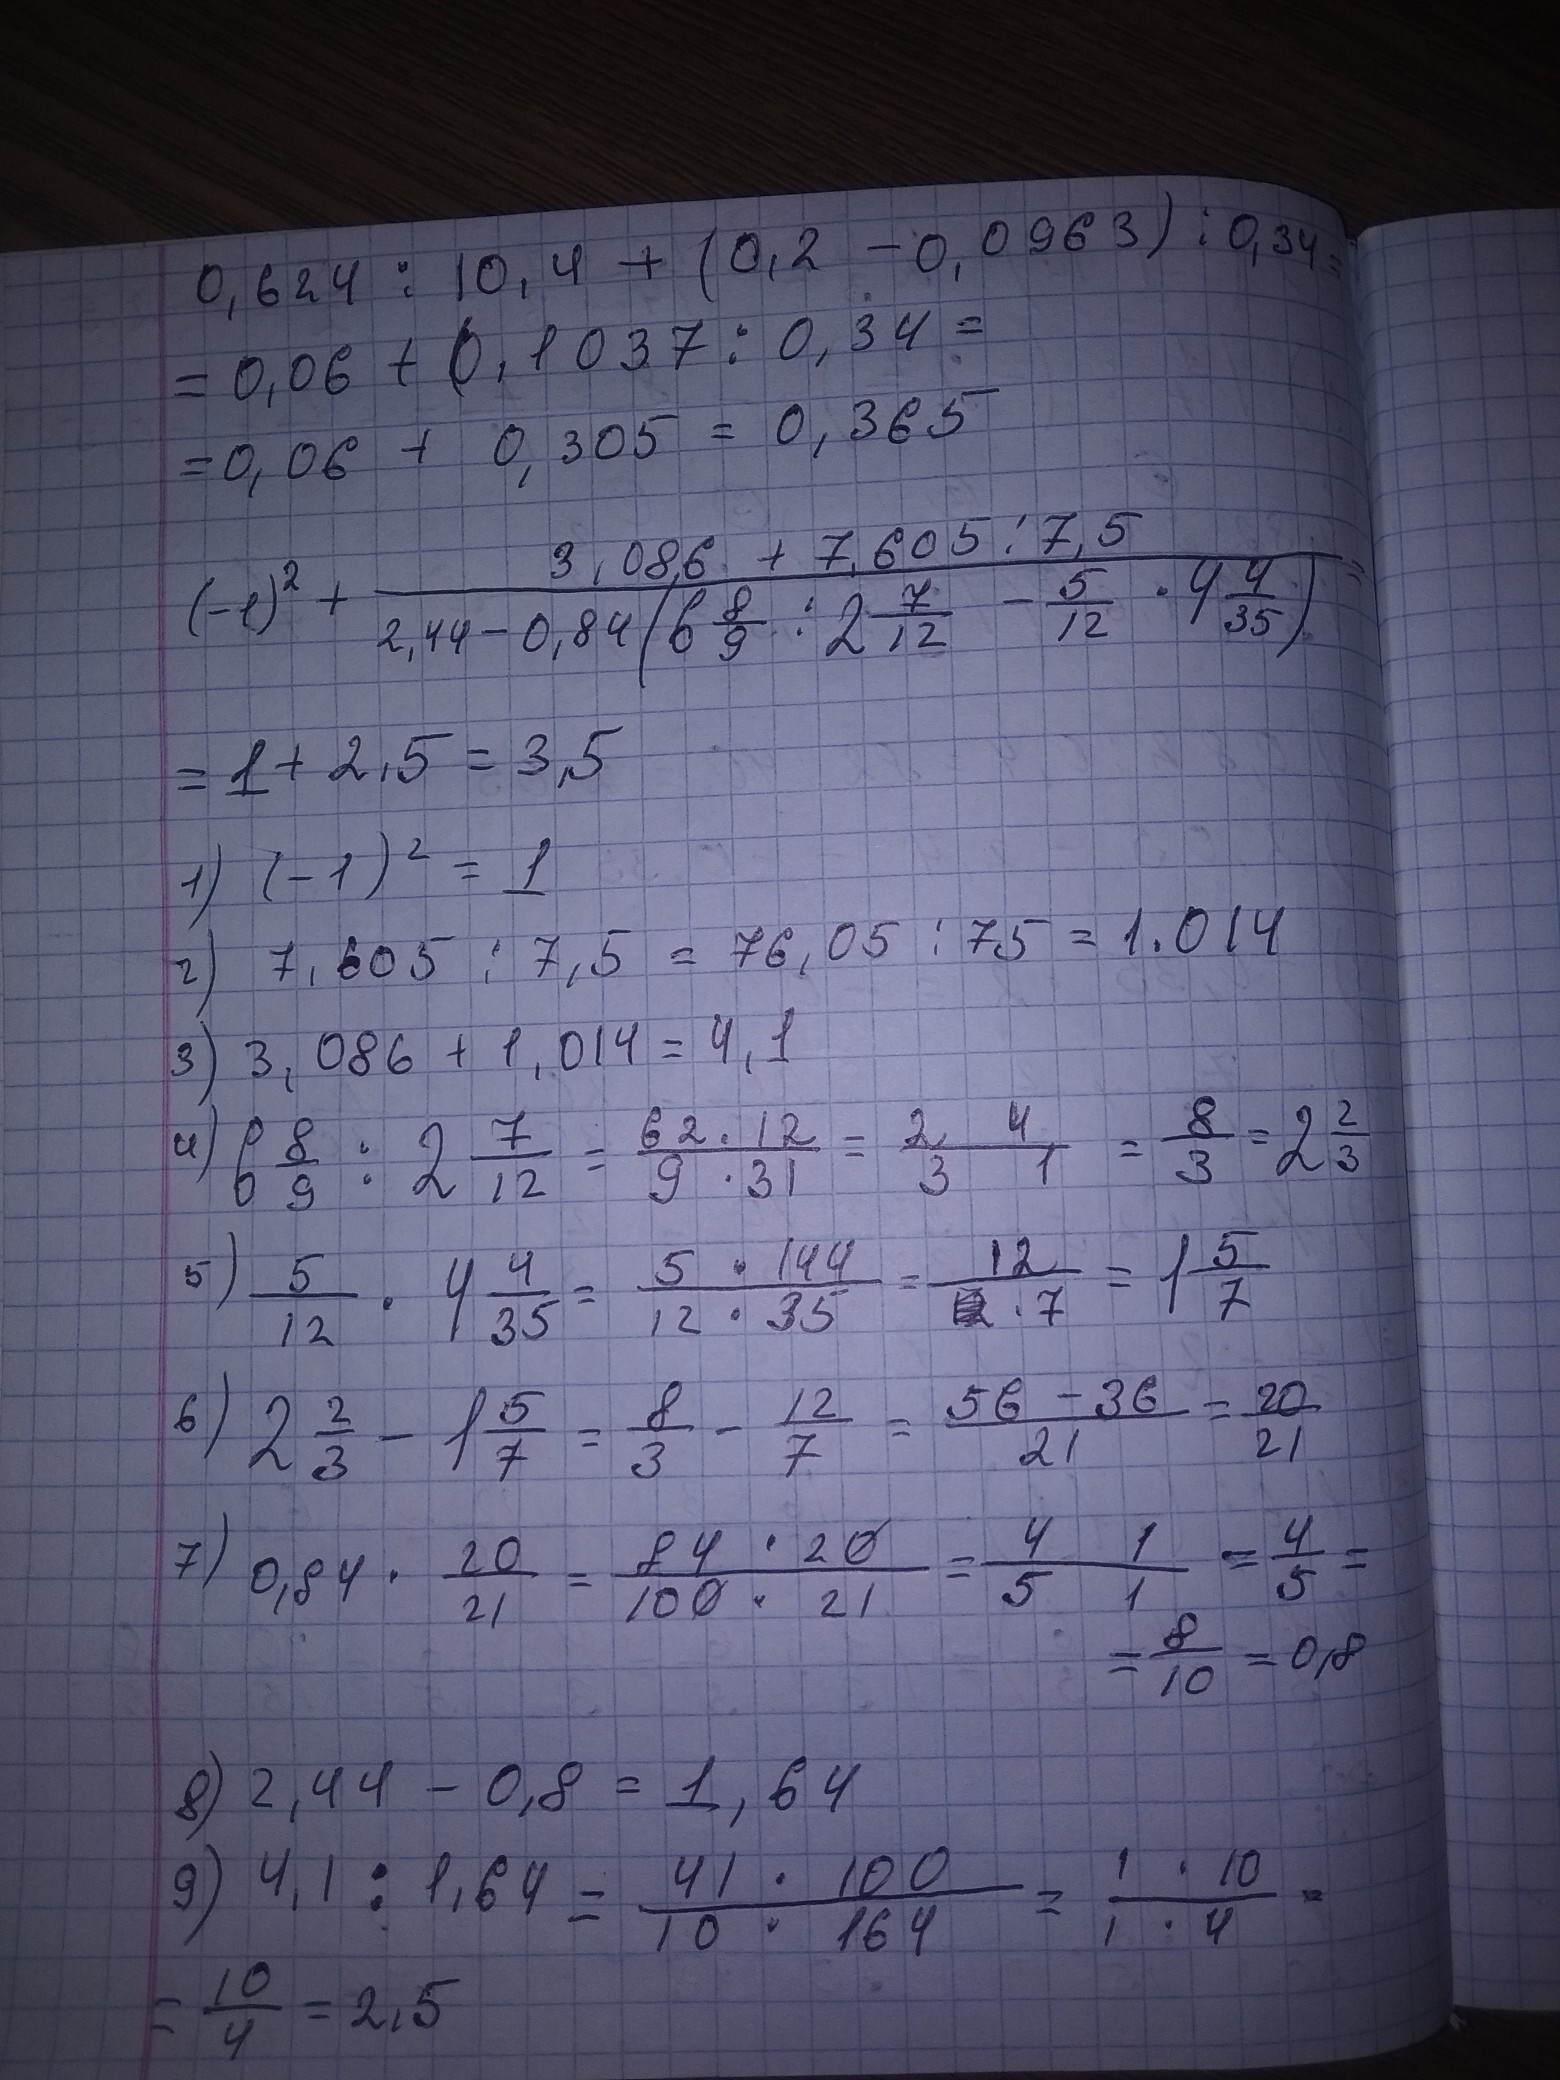 0,624 : 10,4 + (0,2 - 0,0963) : 0,34 =
= 0,06 + 0,1037 : 0,34 =
= 0,06 + 0,305 = 0,365
(-1)² + (3,086 + 7,605 : 7,5) / (2,44 - 0,84(6 8/9 : 2 7/12 - 5/12 · 4 4/35)) =
= 1 + 2,5 = 3,5
1) (-1)² = 1
2) 7,605 : 7,5 = 76,05 : 75 = 1.014
3) 3,086 + 1,014 = 4,1
4) 6 8/9 : 2 7/12 = 62·12 / 9·31 = 2 4 / 3 1 = 8/3 = 2 2/3
5) 5/12 · 4 4/35 = 5·144 / 12·35 = 12 / 12·7 = 1 5/7
6) 2 2/3 - 1 5/7 = 8/3 - 12/7 = 56-36 / 21 = 20/21
7) 0,84 · 20/21 = 84·20 / 100·21 = 4 1 / 5 1 = 4/5 =
= 8/10 = 0,8
8) 2,44 - 0,8 = 1,64
9) 4,1 : 1,64 = 41·100 / 10·164 = 1·10 / 1·4 =
= 10/4 = 2,5